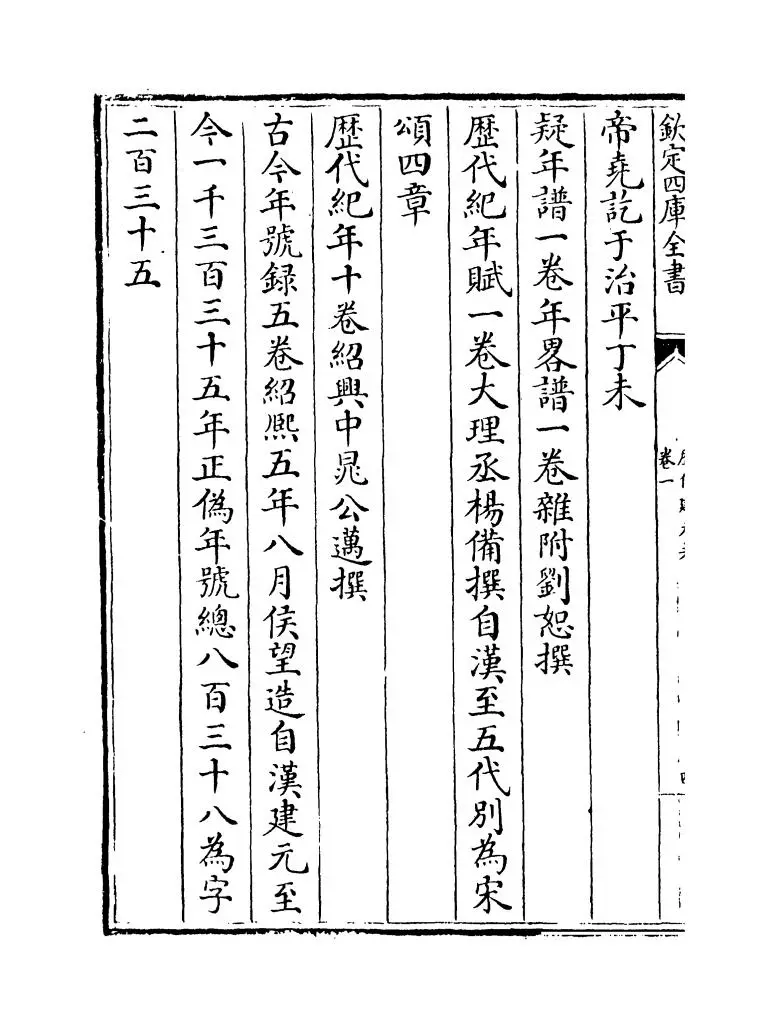 欽定四庫全書
卷一
帝堯訖于治平丁未
疑年譜一卷年畧譜一卷雜附劉恕撰
歴代紀年賦一卷大理丞楊備撰自漢至五代別為宋
頌四章
歴代紀年十卷紹興中晁公邁撰
古今年號録五卷紹熙五年八月侯望造自漢建元至
今一千三百三十五年正偽年號總八百三十八為字
二百三十五